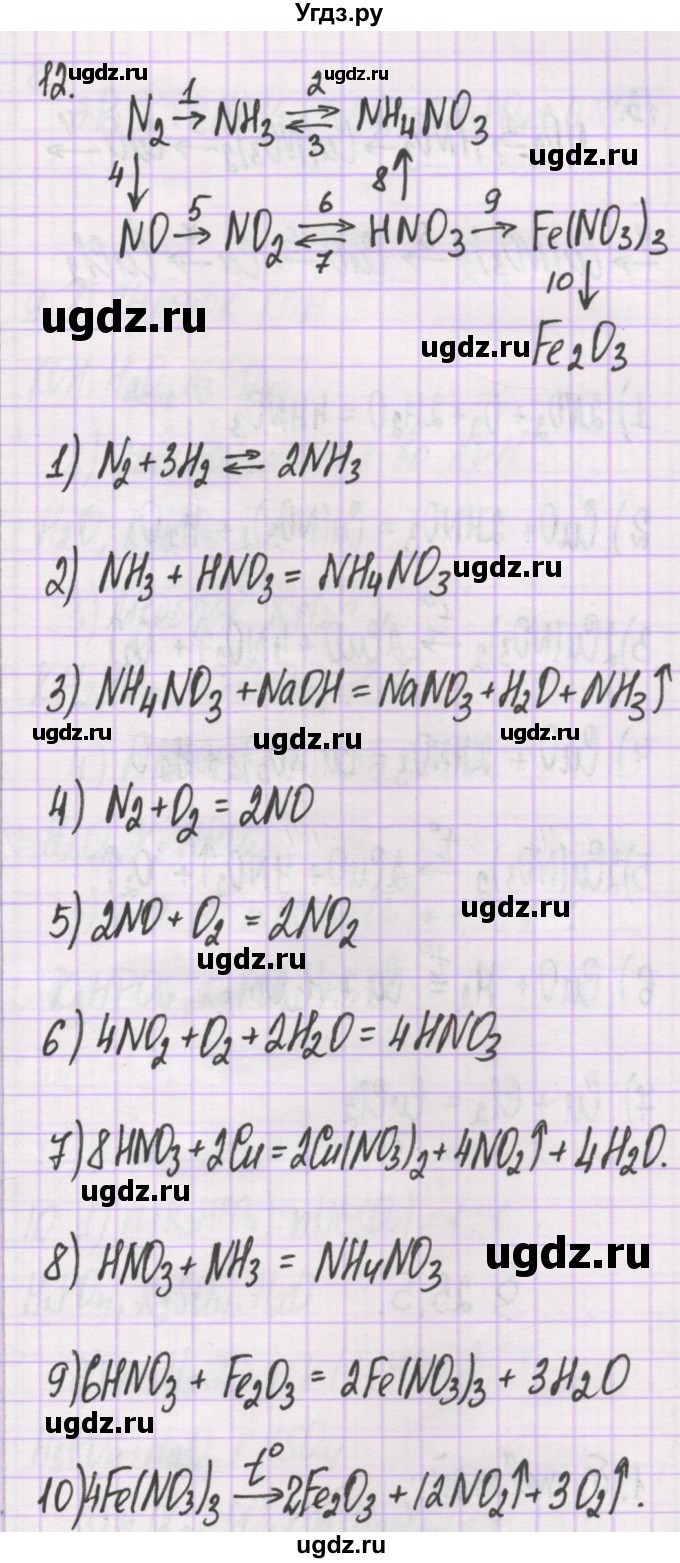 Угдз.ру
ugdz.ru ugdz.ru
12.
1 2
N₂ → NH₃ ⇄ NH₄NO₃
3
ugdz.ru
4 ↓ 8 ↑
5 6 9
NO → NO₂ ⇄ HNO₃ → Fe(NO₃)₃
7
10 ↓
ugdz.ru
ugdz.ru Fe₂O₃
1) N₂ + 3H₂ ⇄ 2NH₃
2) NH₃ + HNO₃ = NH₄NO₃ ugdz.ru
3) NH₄NO₃ + NaOH = NaNO₃ + H₂O + NH₃↑
ugdz.ru ugdz.ru ugdz.ru
4) N₂ + O₂ = 2NO
5) 2NO + O₂ = 2NO₂ ugdz.ru
ugdz.ru
6) 4NO₂ + O₂ + 2H₂O = 4HNO₃
7) 8HNO₃ + 2Cu = 2Cu(NO₃)₂ + 4NO₂↑ + 4H₂O.
ugdz.ru
8) HNO₃ + NH₃ = NH₄NO₃ ugdz.ru
9) 6HNO₃ + Fe₂O₃ = 2Fe(NO₃)₃ + 3H₂O
ugdz.ru
t°
10) 4Fe(NO₃)₃ → 2Fe₂O₃ + 12NO₂↑ + 3O₂↑.
ugdz.ru